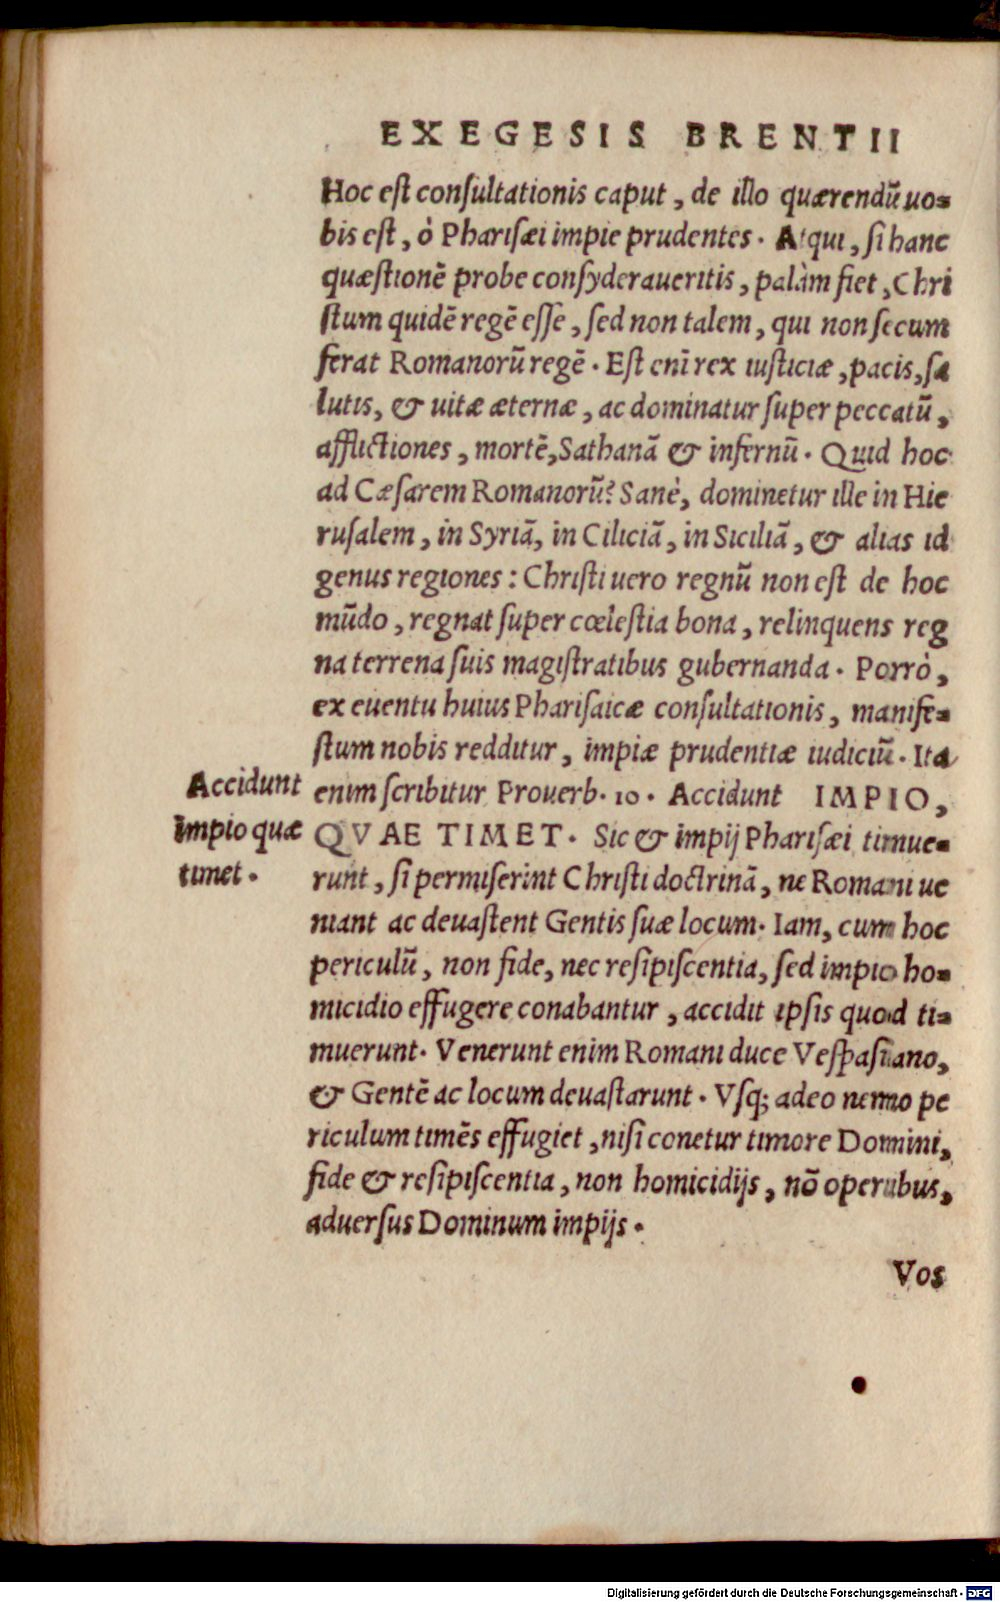 EXEGESIS BRENTII
Hoc eſt conſultationis caput, de illo quærendũ uo-
bis eſt, ò Phariſæi impie prudentes. Atqui, ſi hanc
quæſtionẽ probe conſyderaueritis, palàm fiet, Chri
ſtum quidẽ regẽ eſſe, ſed non talem, qui non ſecum
ferat Romanorũ regẽ. Eſt enĩ rex iuſticiæ, pacis, ſa
lutis, & uitæ æternæ, ac dominatur ſuper peccatũ,
afflictiones, mortẽ, Sathanã & infernũ. Quid hoc
ad Cæſarem Romanorũ? Sanè, dominetur ille in Hie
ruſalem, in Syriã, in Ciliciã, in Siciliã, & alias id
genus regiones: Chriſti uero regnũ non eſt de hoc
mũdo, regnat ſuper cœleſtia bona, relinquens reg
na terrena ſuis magiſtratibus gubernanda. Porrò,
ex euentu huius Phariſaicæ conſultationis, manife-
ſtum nobis redditur, impiæ prudentiæ iudiciũ. Ita
Accidunt
impio quæ
timet.
enim ſcribitur Prouerb. 10. Accidunt IMPIO,
QVAE TIMET. Sic & impij Phariſæi timue-
runt, ſi permiſerint Chriſti doctrinã, ne Romani ue
niant ac deuaſtent Gentis ſuæ locum. Iam, cum hoc
periculũ, non fide, nec reſipiſcentia, ſed impio ho-
micidio effugere conabantur, accidit ipſis quod ti-
muerunt. Venerunt enim Romani duce Veſpaſiano,
& Gentẽ ac locum deuaſtarunt. Vſq; adeo nemo pe
riculum timẽs effugiet, niſi conetur timore Domini,
fide & reſipiſcentia, non homicidijs, nõ operibus,
aduerſus Dominum impijs.
Vos
Digitalisierung gefördert durch die Deutsche Forschungsgemeinschaft - DFG